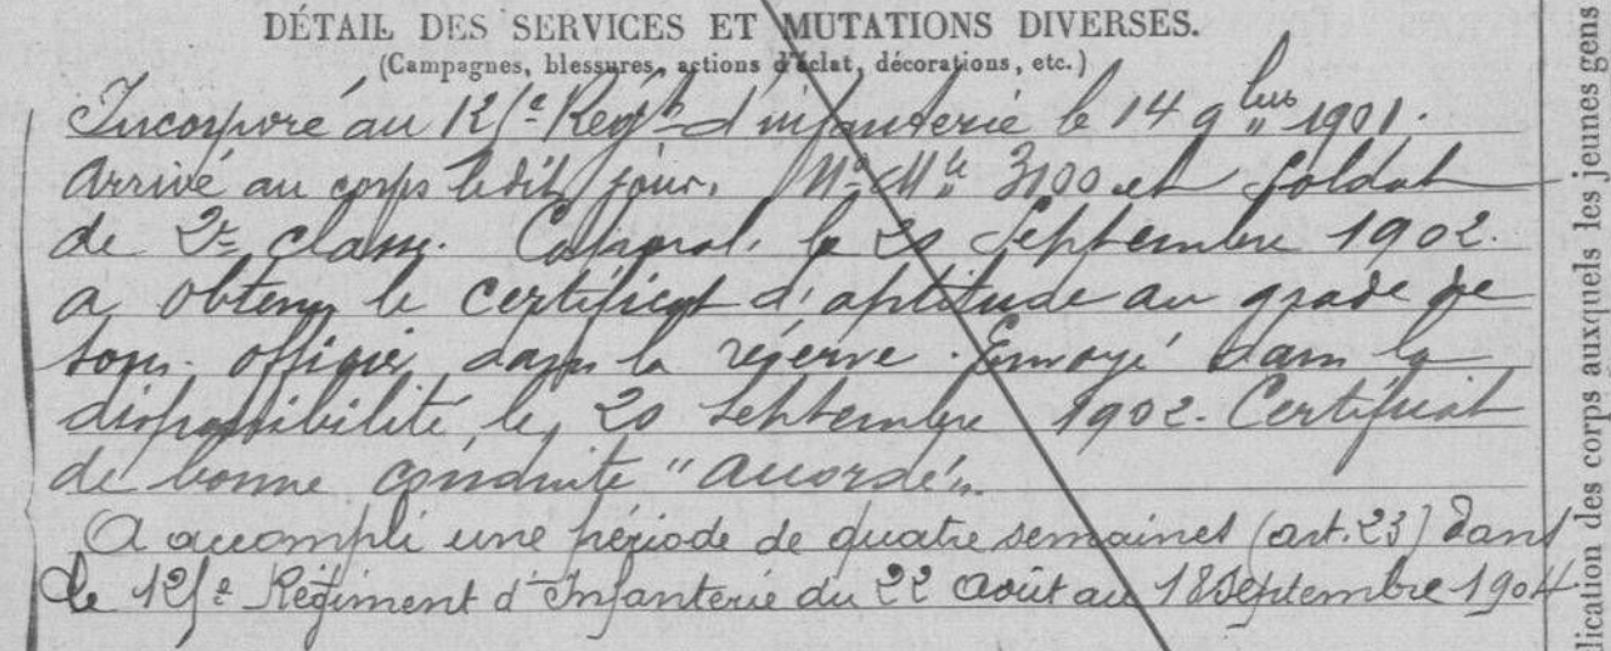 DÉTAIL DES SERVICES ET MUTATIONS DIVERSES.
(Campagnes, blessures, actions d'éclat, décorations, etc.)
Incorporé au 125e Régt d'infanterie le 14 9bre 1901.
Arrivé au corps ledit jour. No Mle 3100 et soldat
de 2e classe. Caporal le 20 Septembre 1902.
a obtenu le certificat d'aptitude au grade de
sous-officier dans la réserve. Envoyé dans la
disponibilité le 20 septembre 1902. Certificat
de bonne conduite "accordé".
A accompli une période de quatre semaines (art. 23) dans
le 125e Régiment d'Infanterie du 22 Août au 18 Septembre 1904
lication des corps auxquels les jeunes gens